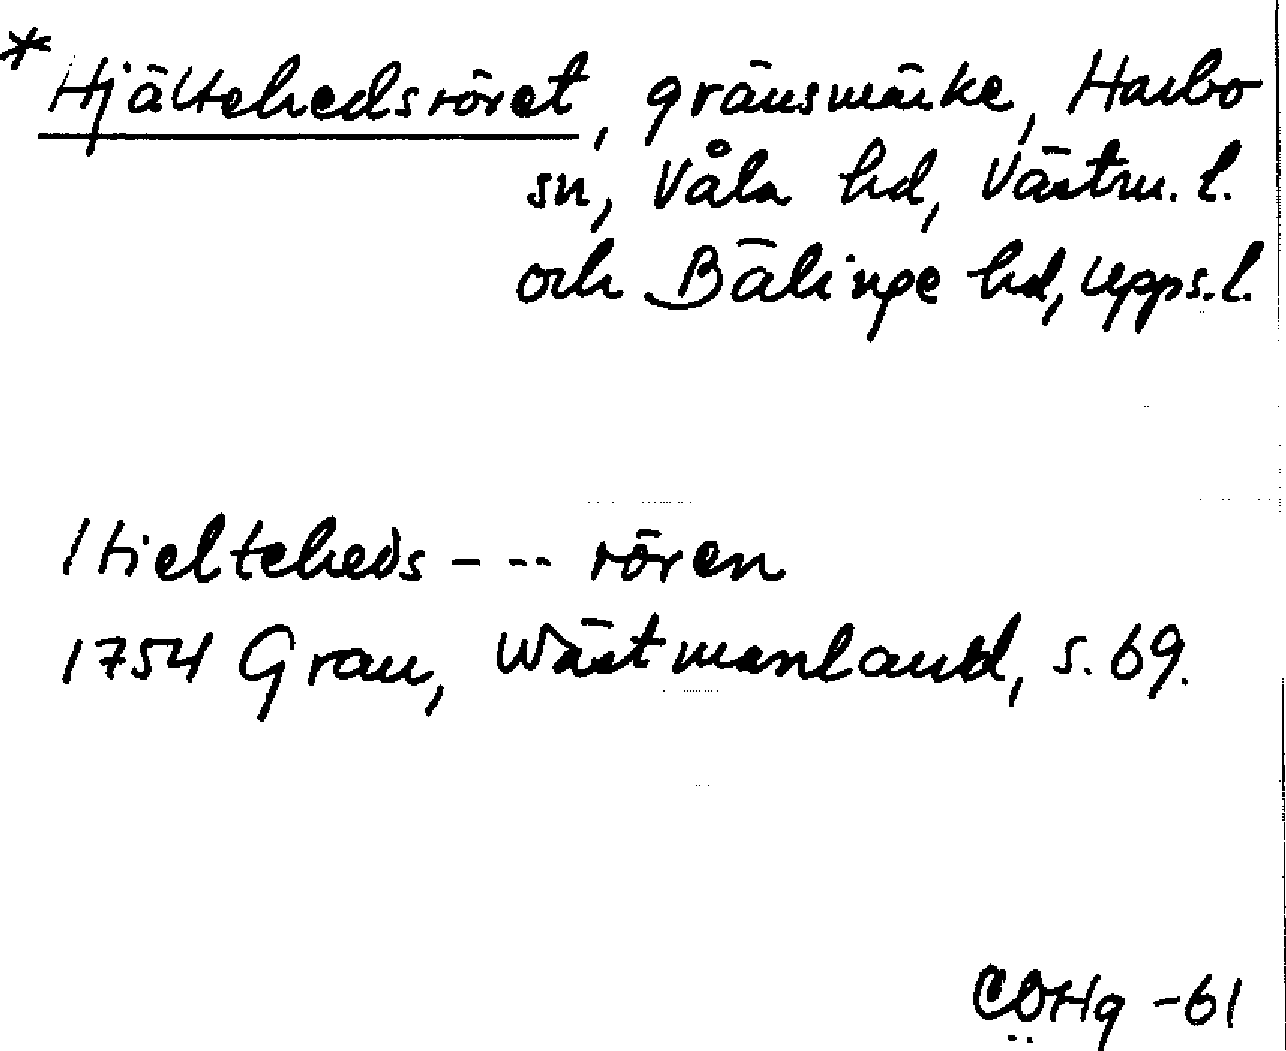 *Hjältehedsröret, gränsmärke, Harbo
sn, Våla hd, Västm. l.
och Bälinge hd, Upps. l.
Hielteheds - -- rören
1754 Grau, Wästmanland, s. 69.
CDHg -61